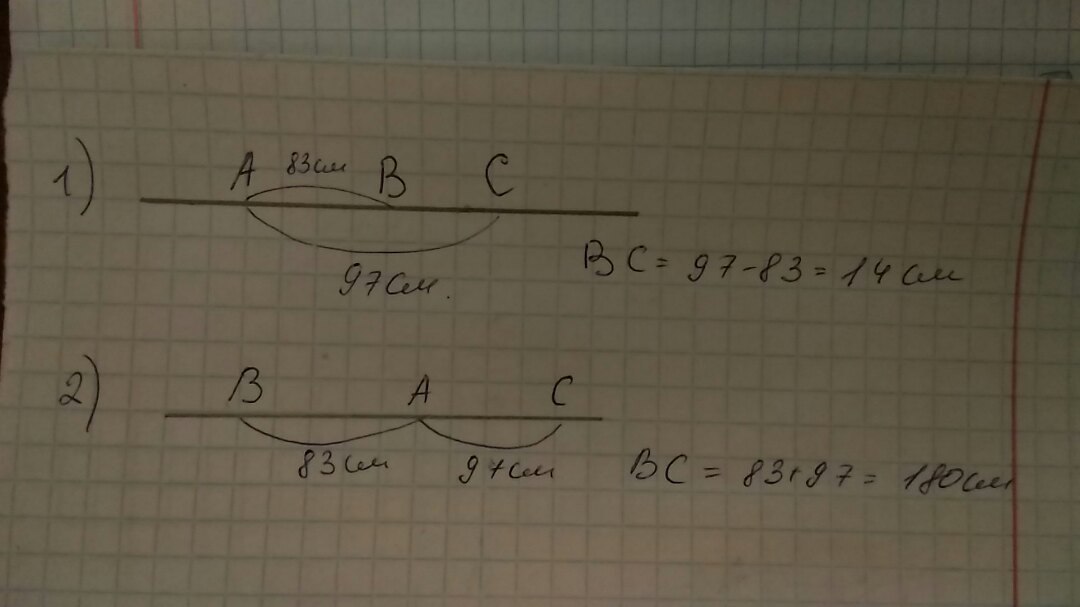 1) A 83см B C
97см.
BC = 97-83 = 14 см
2) B A C
83см 97см
BC = 83+97 = 180см